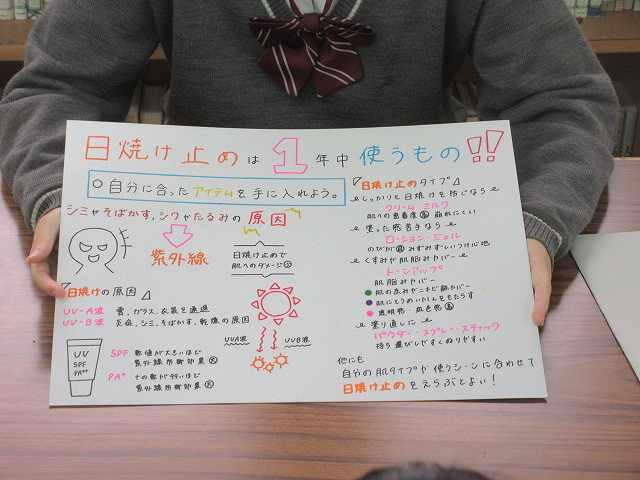 日焼け止めは1年中使うもの!!
○自分に合ったアイテムを手に入れよう。
シミやそばかす,シワやたるみの原因
紫外線
日焼け止めで
肌へのダメージ
日焼けの原因
UV-A波 雲,ガラス,衣服を通過
UV-B波 炎症,シミ,そばかす,乾燥の原因
UV
SPF
PA++
SPF 数値が大きいほど
紫外線防御効果大
PA+ +の数が多いほど
紫外線防御効果大
UVA波
UVB波
日焼け止めのタイプ
しっかりと日焼けを防ぐなら
クリーム ミルク
肌への密着度高 崩れにくい
塗った感苦手なら
ローション・ジェル
のびが みずみずしいつけ心地
くすみや肌悩みカバー
トーンアップ
肌悩みカバー
肌の赤みやニキビ跡カバー
肌にとうめいかんをもたらす
透明感・血色感
塗り直しに
パウダー・スプレー・スティック
持ち運びしやすくぬりやすい
他にも
自分の肌タイプや使うシーンに合わせて
日焼け止めをえらぶとよい!